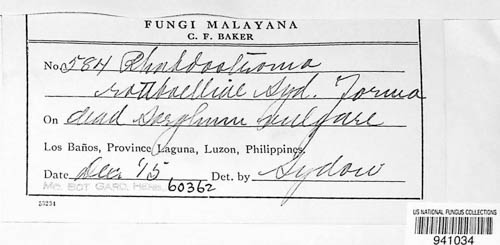 FUNGI MALAYANA
C. F. BAKER
No. 584 Rhabdostroma
rottboelliae Syd. Forma
On dead Sorghum vulgare
Los Baños, Province Laguna, Luzon, Philippines
Date Dec '15 Det. by Sydow
MO. BOT. GARD. HERB. 60362
53231
US NATIONAL FUNGUS COLLECTIONS
941034